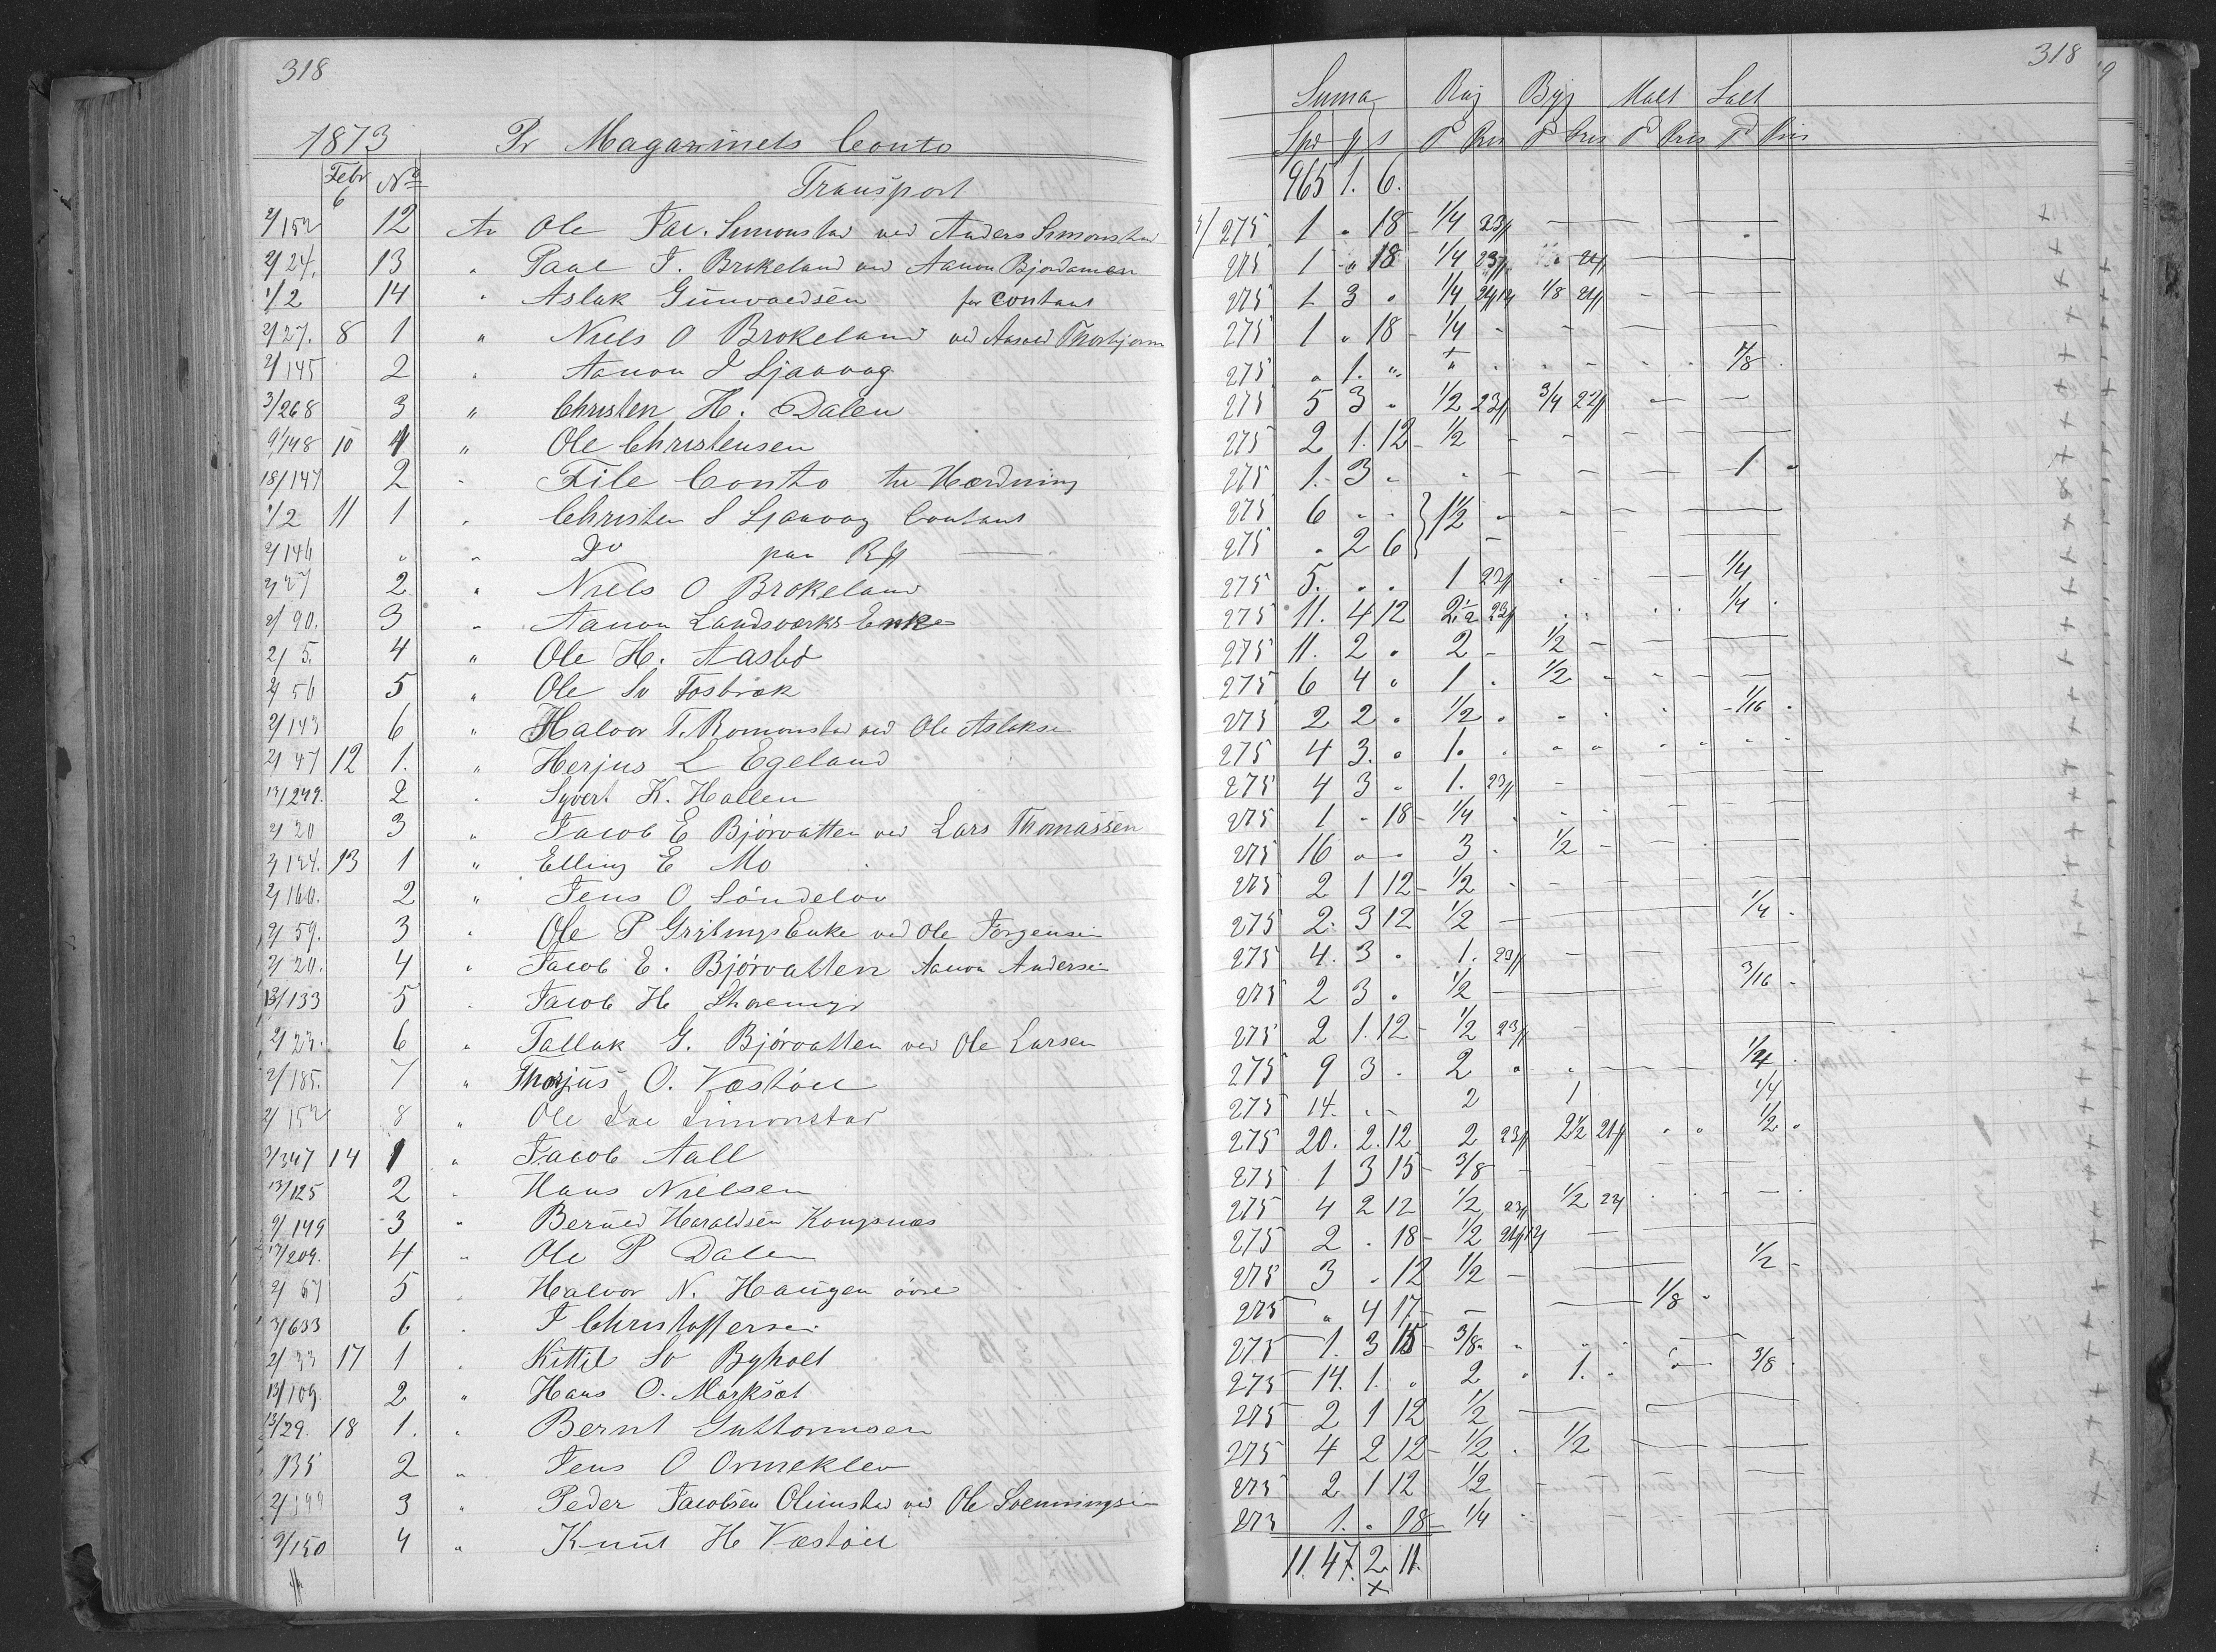 318
1873 Pr Magazinets Conto
Febr 6 No Transport
2/152 12 An Ole Jac. Simonstad ved Anders Simonstad
2/24. 13 " Paal J. Brekeland ved Aanon Bjordamen
1/2 14 " Aslak Gunvaldsen for contant
2/27. 8 1 " Niels O Brokeland ved Thorbjorn
2/145 2 " Aanon J Ljaavag
3/268 3 " Christen H. Dalen
9/148 10 1 " Ole Christensen
18/147 2 " File Conto til Hærdning
1/2 11 1 " Christen S Ljaavag Contant
2/146 " " Do paa
2/27 2 " Niels O Brokeland
2/90. 3 " Aanon Landsværks Enke
2/5. 4 " Ole H. Aasbø
2/56 5 " Ole Sv Fosbræk
2/143 6 " Halvor T. Romonstad ved Ole Aslaksen
2/47 12 1. " Herjus L Egeland
13/249. 2 " Syvert K. Hallen
2/20 3 " Jacob E Bjørvatten ved Lars Thomassen
2/124. 13 1 " Elling E Mo
2/160. 2 " Jens O Søndeløv
2/59. 3 " Ole P Grytings Enke ved Ole Jorgensen
2/20. 4 " Jacob E. Bjørvatten Aanon Andersen
13/133 5 " Jacob H
2/23. 6 " Tallak G. Bjørvatten ved Ole Larsen
2/185. 7 " Thorjus O. Væstøll
2/152 8 " Ole Jac Simonstad
2/347 14 1 " Jacob Aall
13/125 2 " Hans Nielsen
9/149 3 " Haraldsen Kongsnæs
13/209. 4 " Ole P Dalen
2/67 5 " Halvor N. Haugen øvre
3/633 6 " J Christoffersen
2/33 17 1 " Kittil Sv Byholt
13/109. 2 " Hans O. Marksæt
13/29. 18 1. " Bernt Guttormsen
135 2 " Jens O Ormeklev
2/199 3 " Peder Jacobsen Olimstad ved Ole
9/150 4 " Knut H Væstøll
318
Suma Rug Byg Malt Salt
Spd P Pris P Pris P Pris P Pris
965 1. 6.
275 1 " 18 1/4 23
275 1 " 18 1/4 23 21
275 1 3 " 1/4 1/8 21
275 1 " 18 1/4
275 " 1. " 7/8
275 5 3 " 1/2 23 3/4 22
275 2 1. 12 1/2
275 1. 3 " 1
275 6 " " 1 1/2
275 " 2 6
275 5. " " 1 23 1/4
275 11. 4 12 2 1/2 23 1/4
275 11. 2 " 2 1/2
275 6 4 " 1 1/2
275 2 2 " 1/2 1/16
275 4 3. " 1.
275 4 3 " 1. 23
275 1 " 18 1/4
275 16 " " 3 1/2
275 2 1 12 1/2
275 2. 3 12 1/2 1/4
275 4. 3 " 1. 23
275 2 3 " 1/2 3/16
275 2 1. 12 1/2 23
275 9 3 " 2 1/4
275 14. " " 2 1 1/4
275 20. 2. 12 2 23 2 1/2 21 1/2
275 1 3 15 3/8
275 4 2 12 1/2 23 1/2 22
275 2 " 18 1/2
275 3 " 12 1/2 1/2
275 " 4 17 1/8
275 1. 3 15 3/8
275 14. 1. " 2 1. 3/8
275 2 1 12 1/2
275 4 2 12 1/2 1/2
275 2 1 12 1/2
275 1. " 18 1/4
11.47. 2 11.